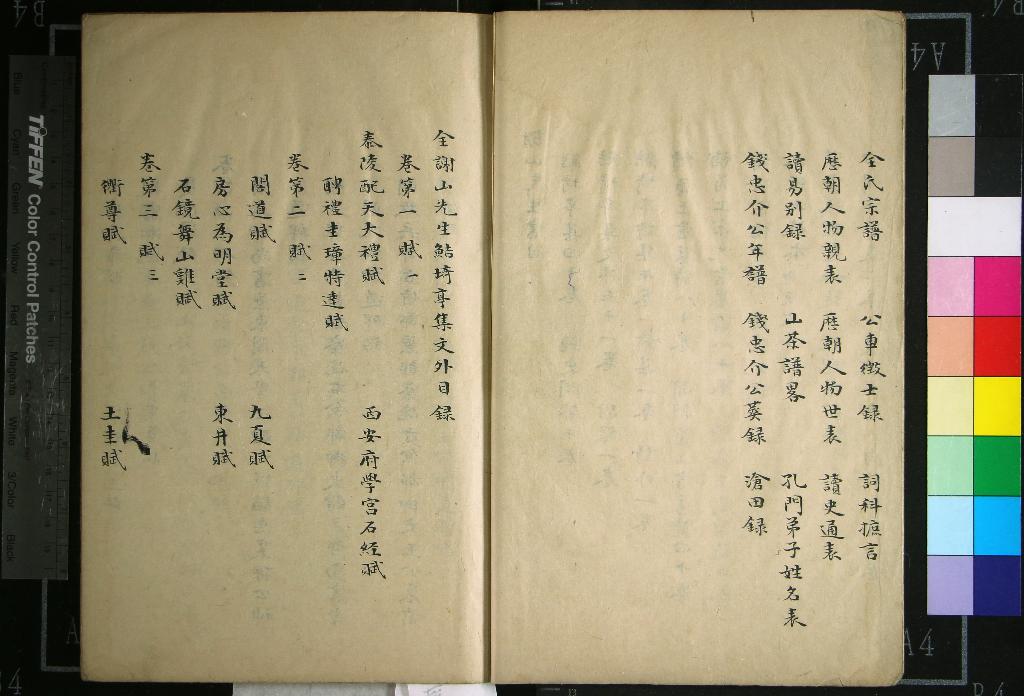 全氏宗譜 公車徴士録 詞科摭言
歴朝人物親表 歴朝人物世表 讀史通表
讀易别録 山茶譜畧 孔門弟子姓名表
錢忠介公年譜 錢忠介公葵録 滄田録
全謝山先生鮚埼亭集文外目録
卷第一 賦一
泰陵配天大禮賦 西安府學宫石經賦
聘禮圭璋特達賦
卷第二 賦二
閣道賦 九夏賦
房心為明堂賦 東井賦
石鏡舞山雞賦
卷第三 賦三
衢尊賦 土圭賦
TIFFEN Color Control Patches
Blue Cyan Green Yellow Red Magenta White 3/Color Black
A4
A4
B4